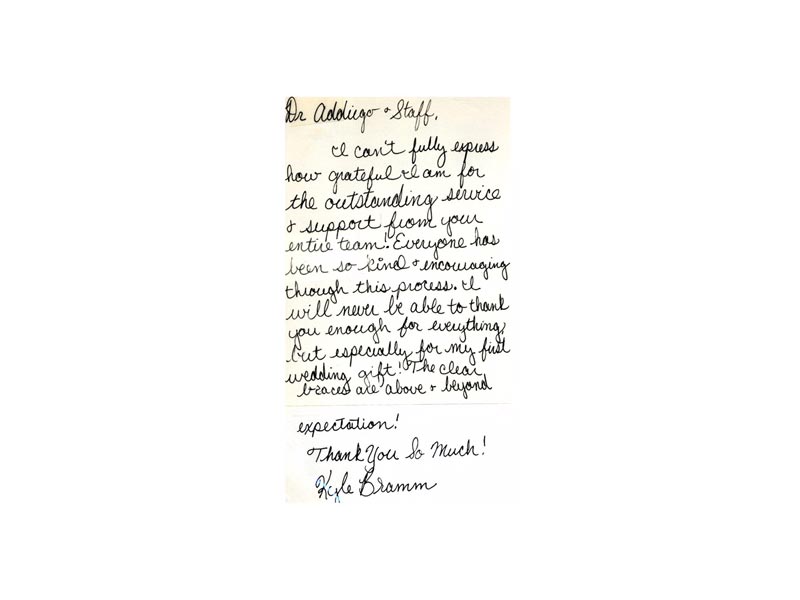 Dr Addiego & Staff,
I can't fully express
how grateful I am for
the outstanding service
& support from your
entire team! Everyone has
been so kind & encouraging
through this process. I
will never be able to thank
you enough for everything,
but especially for my first
wedding gift! The clear
braces are above & beyond
expectation!
Thank You So Much!
Kyle Bramm